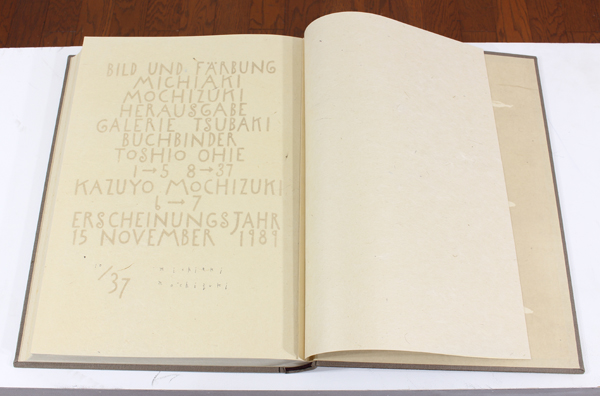 BILD UND FÄRBUNG
MICHIAKI
MOCHIZUKI
HERAUSGABE
GALERIE TSUBAKI
BUCHBINDER
TOSHIO OHIE
1→5 8→37
KAZUYO MOCHIZUKI
6→7
ERSCHEINUNGSJAHR
15 NOVEMBER 1989
/37